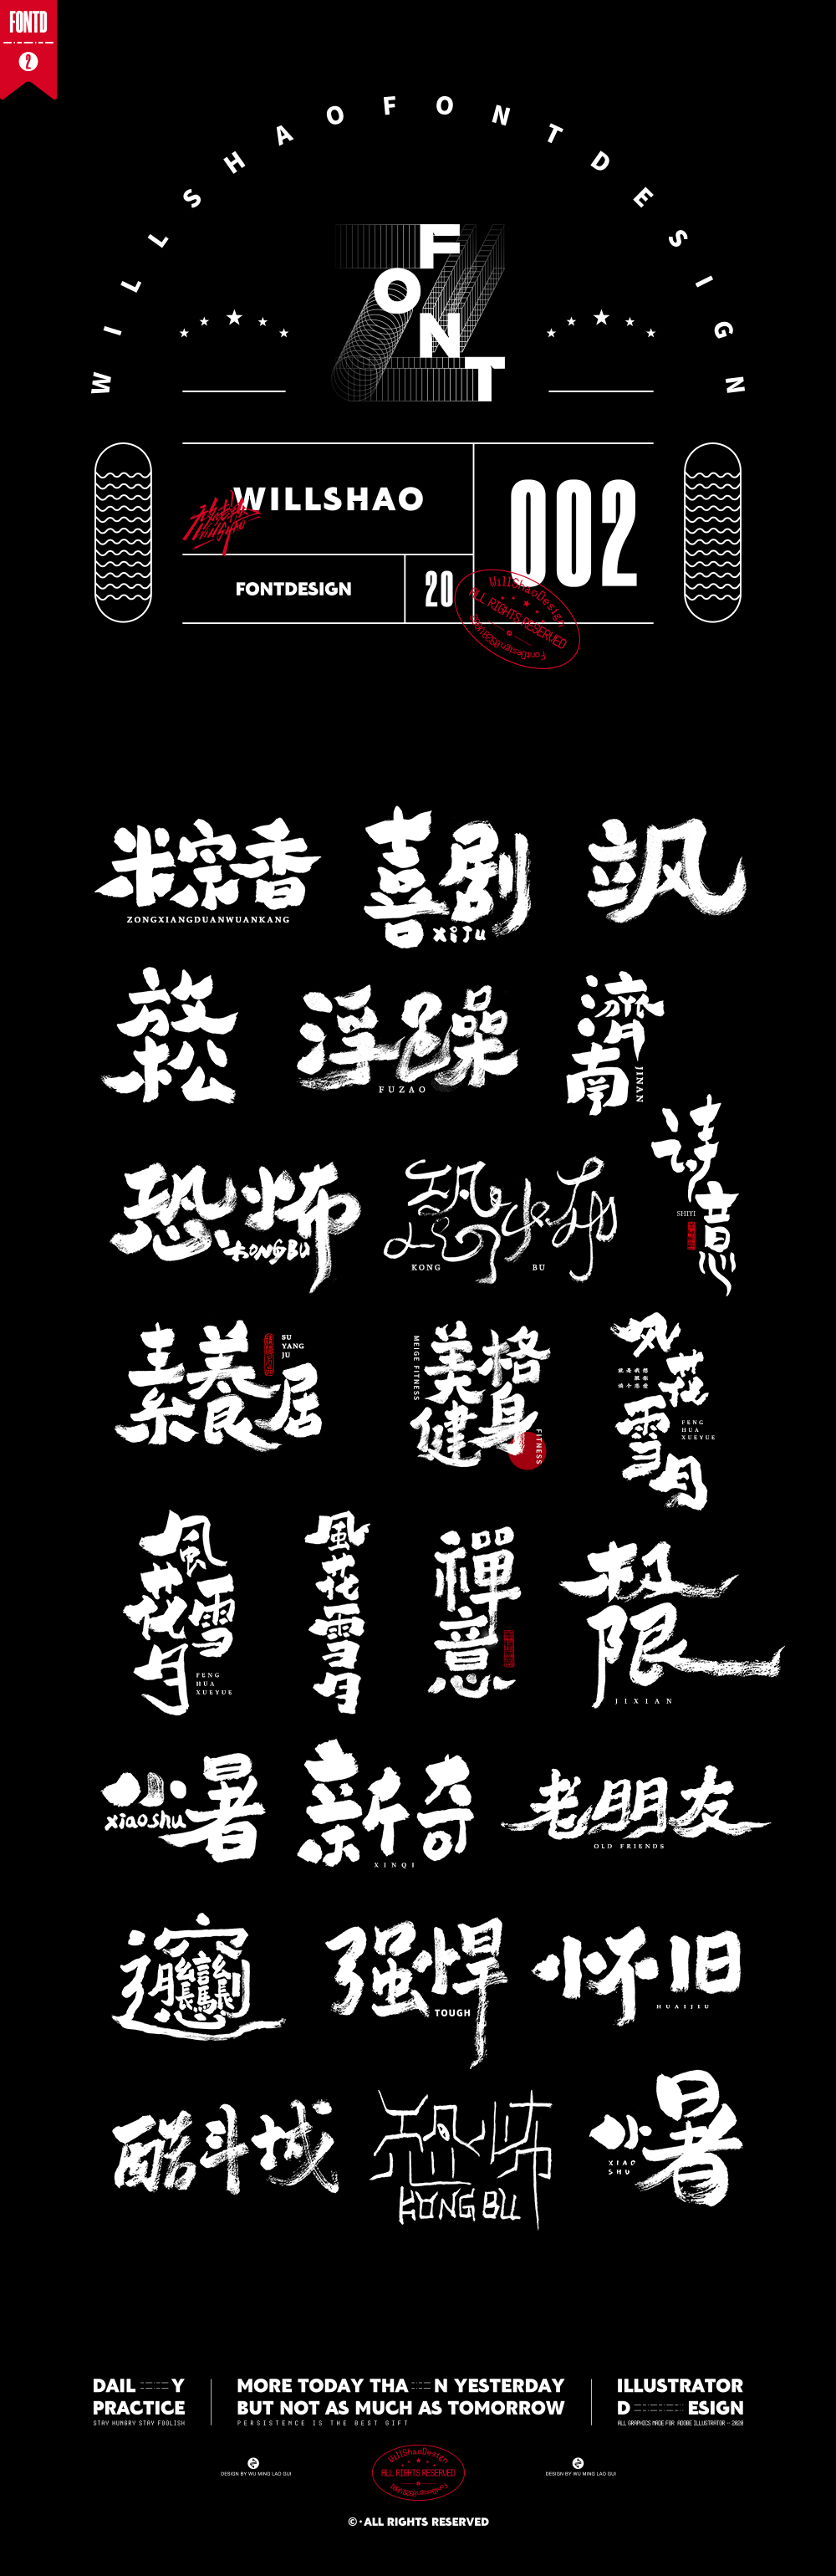 FONTD
2
WILLSHAOFONTDESIGN
FONT
WILLSHAO
willshao
002
FONTDESIGN
20
WillShaoDesign
ALL RIGHTS RESERVED
粽香
ZONGXIANGDUANWUANKANG
喜剧
XiJu
飒
放松
浮躁
FUZAO
濟南
JINAN
诗意
SHIYI
恐怖
KONGBU
恐怖
KONG BU
素養居
SU
YANG
JU
美格
健身
MEIGE FITNESS
FITNESS
风花雪月
FENG
HUA
XUEYUE
風花雪月
FENG
HUA
XUEYUE
風花雪月
禪意
极限
JIXIAN
小暑
xiaoshu
新奇
XINQI
老朋友
OLD FRIENDS
𰻞
强悍
TOUGH
怀旧
HUAIJIU
酷斗城
恐怖
KONG BU
小暑
XIAO
SHU
DAIL Y
PRACTICE
STAY HUNGRY STAY FOOLISH
MORE TODAY THA N YESTERDAY
BUT NOT AS MUCH AS TOMORROW
PERSISTENCE IS THE BEST GIFT
ILLUSTRATOR
D ESIGN
ALL GRAPHICS MADE FOR ADOBE ILLUSTRATOR - 2020
DESIGN BY WU MING LAO GUI
WillShaoDesign
ALL RIGHTS RESERVED
DESIGN BY WU MING LAO GUI
©·ALL RIGHTS RESERVED